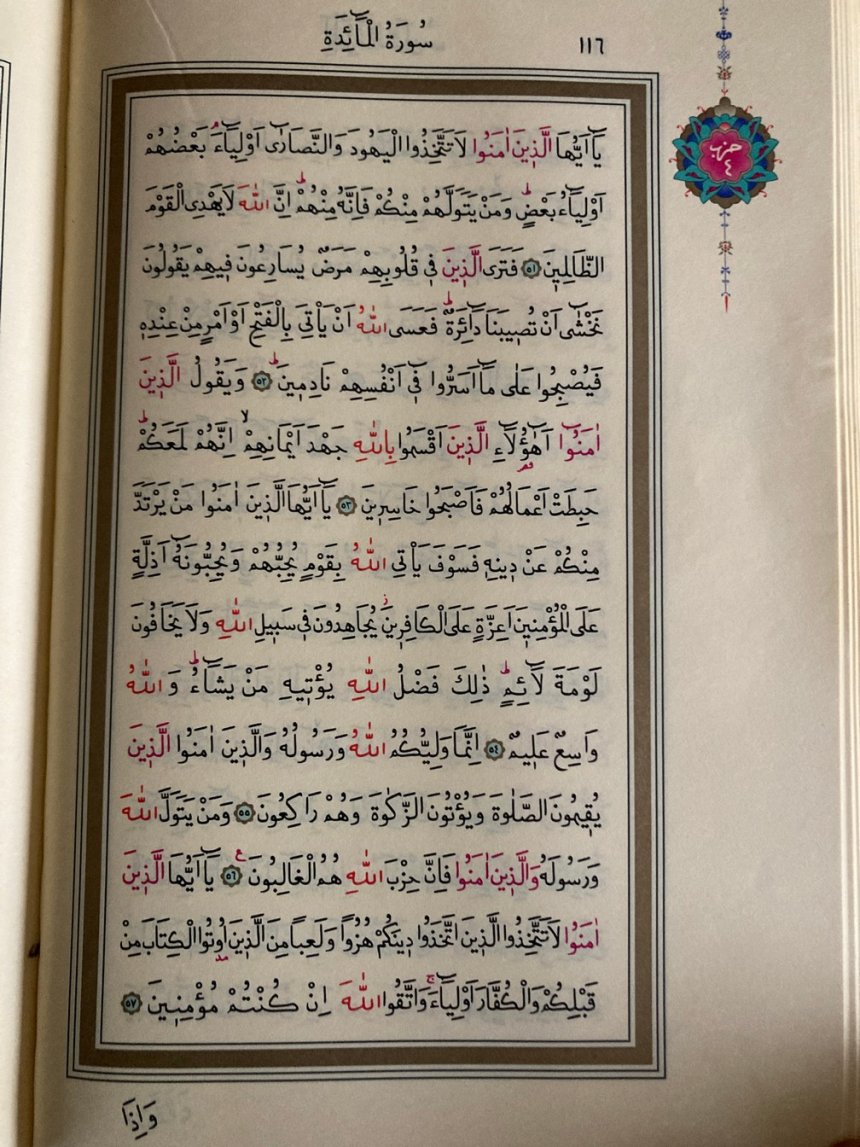 سُورَةُ الْمَٓائِدَةِ
١١٦
حزب
٤
يَٓا اَيُّهَا الَّذ۪ينَ اٰمَنُوا لَا تَتَّخِذُوا الْيَهُودَ وَالنَّصَارٰٓى اَوْلِيَٓاءَۢ بَعْضُهُمْ
اَوْلِيَٓاءُ بَعْضٍۜ وَمَنْ يَتَوَلَّهُمْ مِنْكُمْ فَاِنَّهُ مِنْهُمْۜ اِنَّ اللّٰهَ لَا يَهْدِي الْقَوْمَ
الظَّالِم۪ينَ ﴿٥١﴾ فَتَرَى الَّذ۪ينَ ف۪ي قُلُوبِهِمْ مَرَضٌ يُسَارِعُونَ ف۪يهِمْ يَقُولُونَ
نَخْشٰٓى اَنْ تُص۪يبَنَا دَٓائِرَةٌۜ فَعَسَى اللّٰهُ اَنْ يَأْتِيَ بِالْفَتْحِ اَوْ اَمْرٍ مِنْ عِنْدِه۪
فَيُصْبِحُوا عَلٰى مَٓا اَسَرُّوا ف۪ٓي اَنْفُسِهِمْ نَادِم۪ينَۜ ﴿٥٢﴾ وَيَقُولُ الَّذ۪ينَ
اٰمَنُٓوا اَهٰٓؤُ۬لَٓاءِ الَّذ۪ينَ اَقْسَمُوا بِاللّٰهِ جَهْدَ اَيْمَانِهِمْۙ اِنَّهُمْ لَمَعَكُمْۜ
حَبِطَتْ اَعْمَالُهُمْ فَاَصْبَحُوا خَاسِر۪ينَ ﴿٥٣﴾ يَٓا اَيُّهَا الَّذ۪ينَ اٰمَنُوا مَنْ يَرْتَدَّ
مِنْكُمْ عَنْ د۪ينِه۪ فَسَوْفَ يَأْتِي اللّٰهُ بِقَوْمٍ يُحِبُّهُمْ وَيُحِبُّونَهُٓ اَذِلَّةٍ
عَلَى الْمُؤْمِن۪ينَ اَعِزَّةٍ عَلَى الْكَافِر۪ينَۘ يُجَاهِدُونَ ف۪ي سَب۪يلِ اللّٰهِ وَلَا يَخَافُونَ
لَوْمَةَ لَٓائِمٍۜ ذٰلِكَ فَضْلُ اللّٰهِ يُؤْت۪يهِ مَنْ يَشَٓاءُۜ وَاللّٰهُ
وَاسِعٌ عَل۪يمٌ ﴿٥٤﴾ اِنَّمَا وَلِيُّكُمُ اللّٰهُ وَرَسُولُهُ وَالَّذ۪ينَ اٰمَنُوا الَّذ۪ينَ
يُق۪يمُونَ الصَّلٰوةَ وَيُؤْتُونَ الزَّكٰوةَ وَهُمْ رَاكِعُونَ ﴿٥٥﴾ وَمَنْ يَتَوَلَّ اللّٰهَ
وَرَسُولَهُ وَالَّذ۪ينَ اٰمَنُوا فَاِنَّ حِزْبَ اللّٰهِ هُمُ الْغَالِبُونَ ﴿٥٦﴾ يَٓا اَيُّهَا الَّذ۪ينَ
اٰمَنُوا لَا تَتَّخِذُوا الَّذ۪ينَ اتَّخَذُوا د۪ينَكُمْ هُزُواً وَلَعِباً مِنَ الَّذ۪ينَ اُو۫تُوا الْكِتَابَ مِنْ
قَبْلِكُمْ وَالْكُفَّارَ اَوْلِيَٓاءَۚ وَاتَّقُوا اللّٰهَ اِنْ كُنْتُمْ مُؤْمِن۪ينَ ﴿٥٧﴾
وَاِذَا